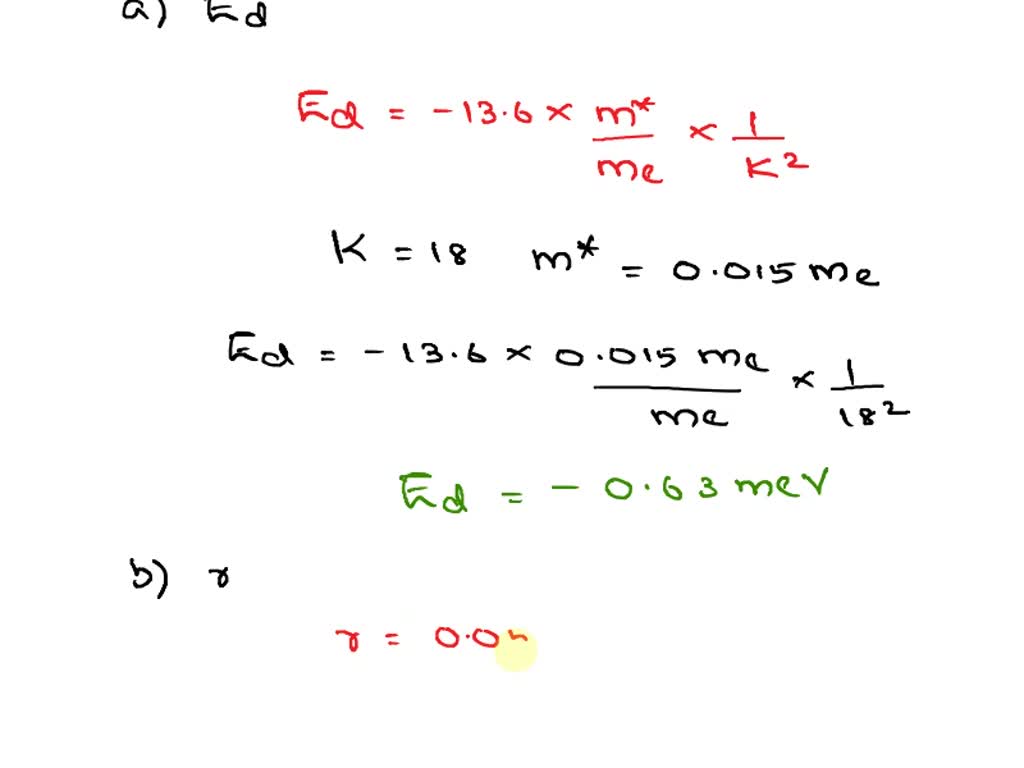 a) Ed
Ed = -13.6 × m*/me × 1/K²
K = 18 m* = 0.015 me
Ed = -13.6 × 0.015 me/me × 1/18²
Ed = - 0.63 meV
b) r
r = 0.0